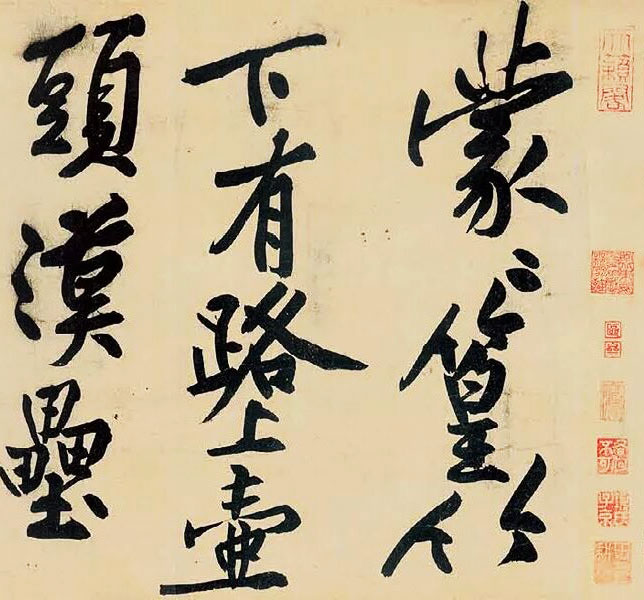 蒙〻篁竹
下有路上壺
頭漢壘